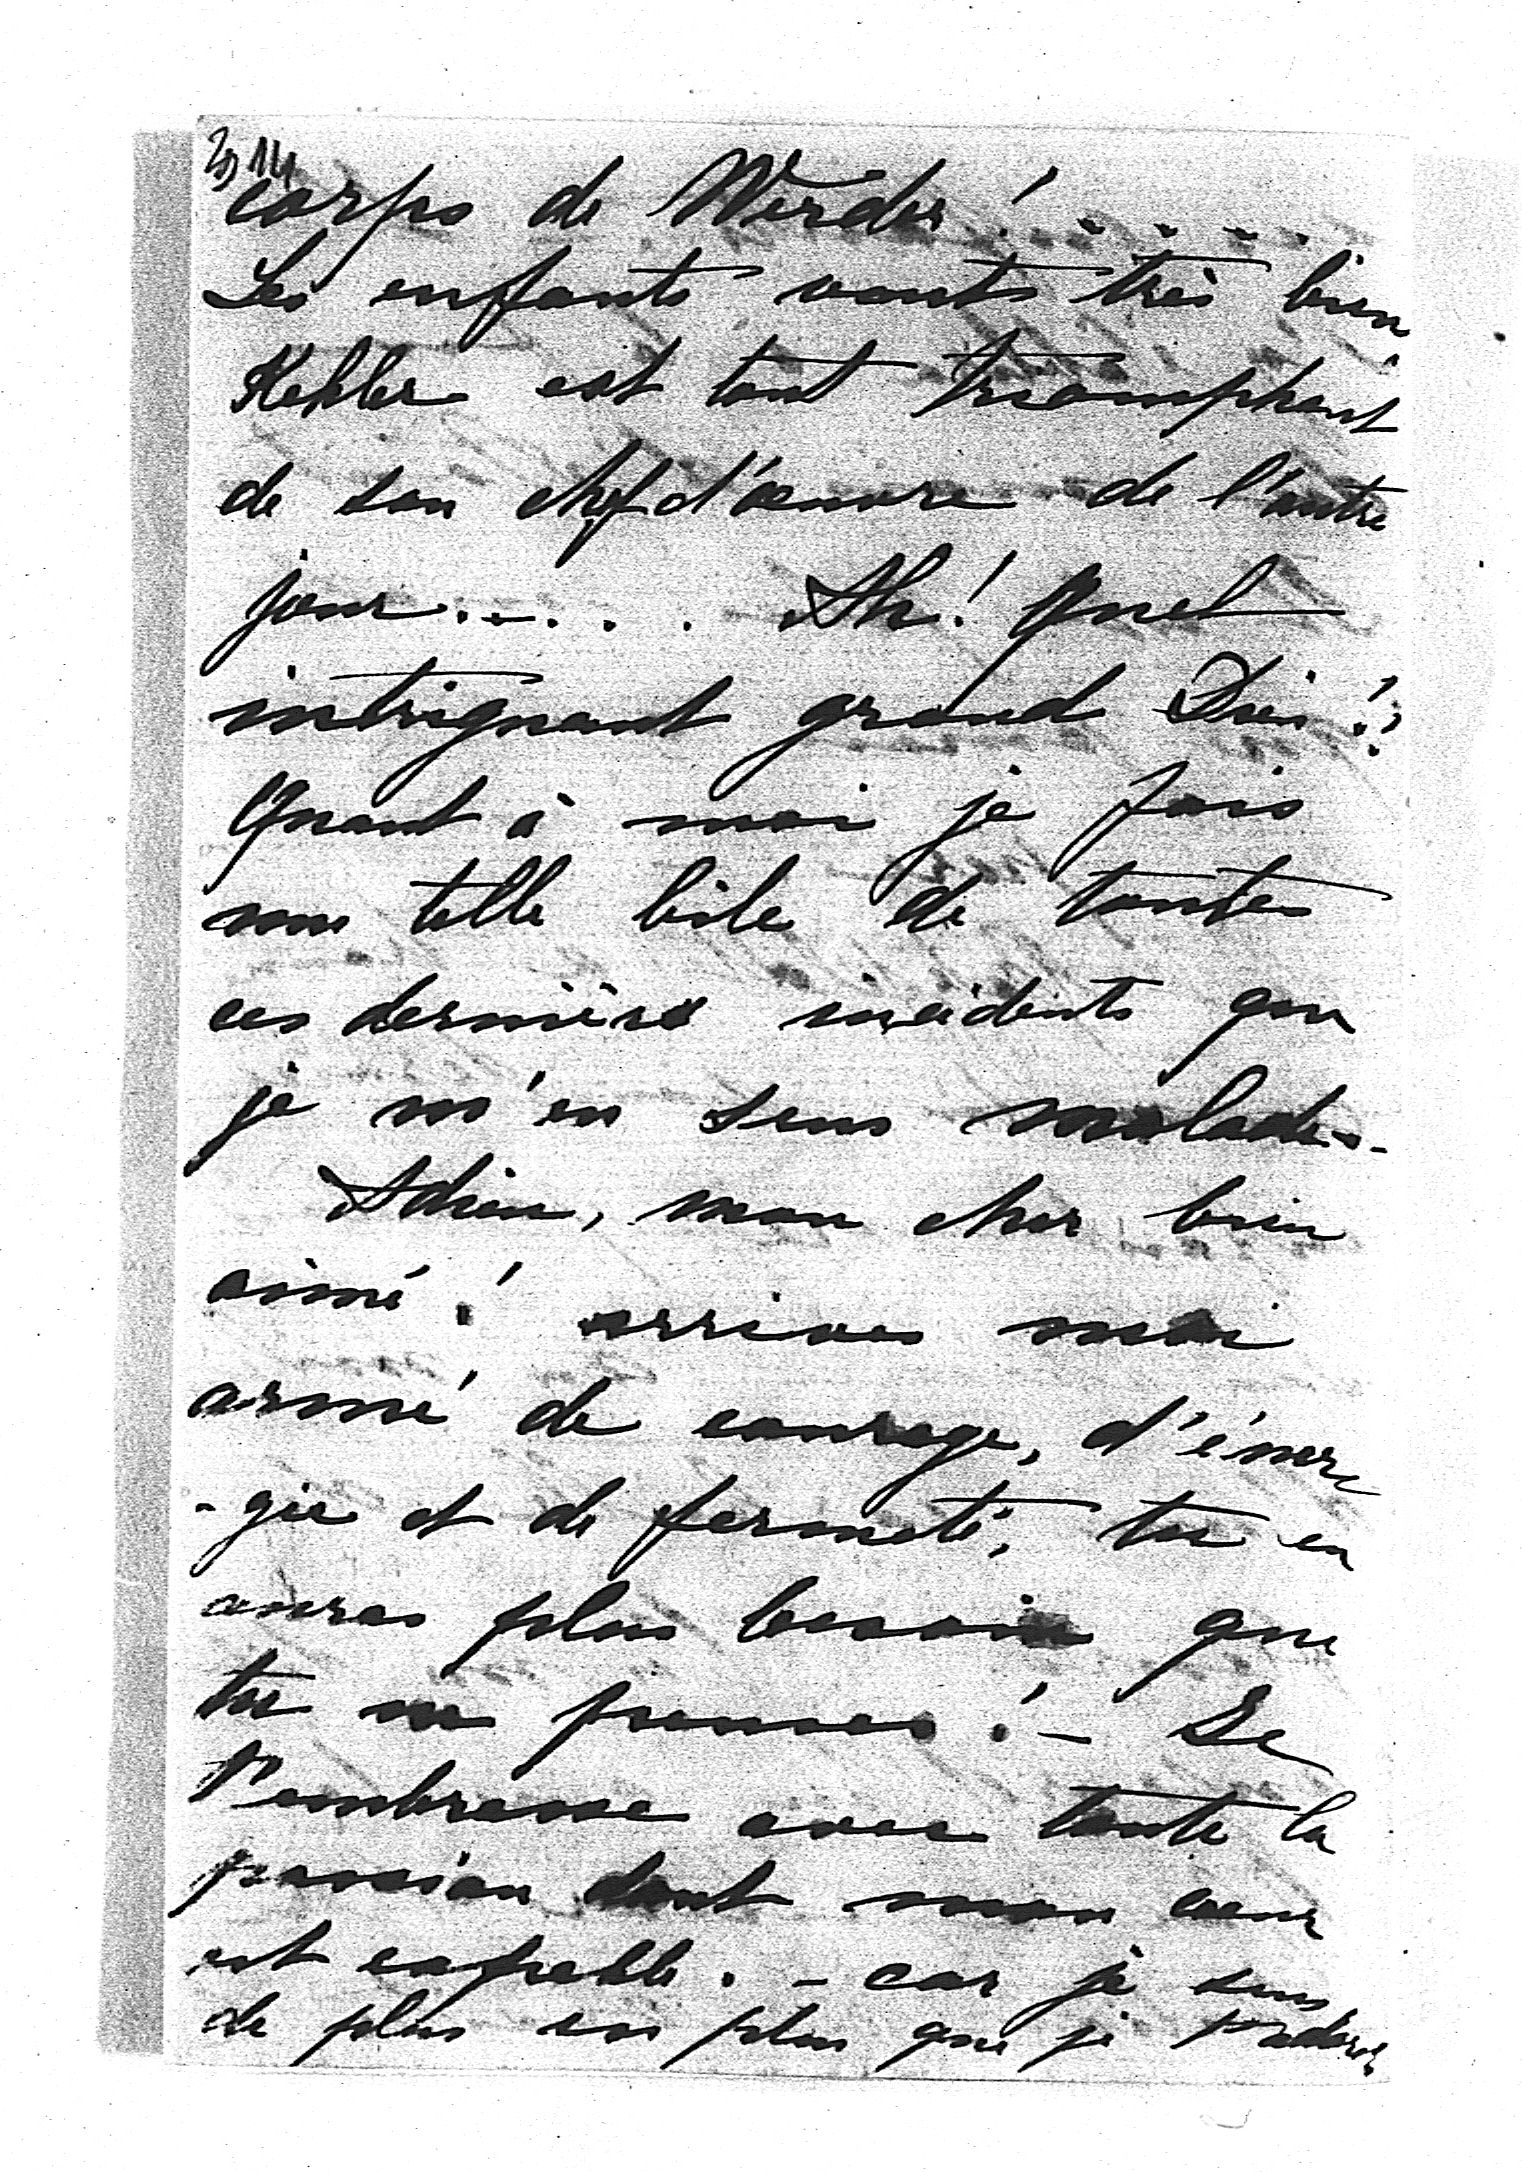 corps de Werder ! . . . .
Les enfants vont très bien
Kehler est tout triomphant
de son chef d'œuvre de l'autre
jour . . . . . Ah ! quel
intrigant grand Dieu !!
Quant à moi je fais
une telle bile de toutes
ces dernières incidents que
je m'en sens malade. -
Adieu, mon cher bien
aimé ! arrives moi
armé de courage, d'éner
-gie et de fermeté, tu en
auras plus besoin que
tu ne penses ! - Je
t'embrasse avec toute la
passion dont mon cœur
est capable. - car je sens
de plus en plus que je t'adore